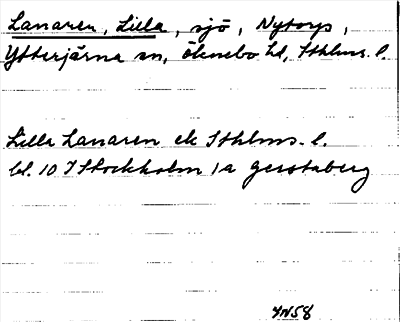 Lanaren, Lilla, sjö, Nytorp,
Ytterjärna sn, Öknebo hd, Sthlms. l.
Lilla Lanaren ek Sthlms. l.
bl. 10 I Stockholm 1a Gerstaberg
IN58